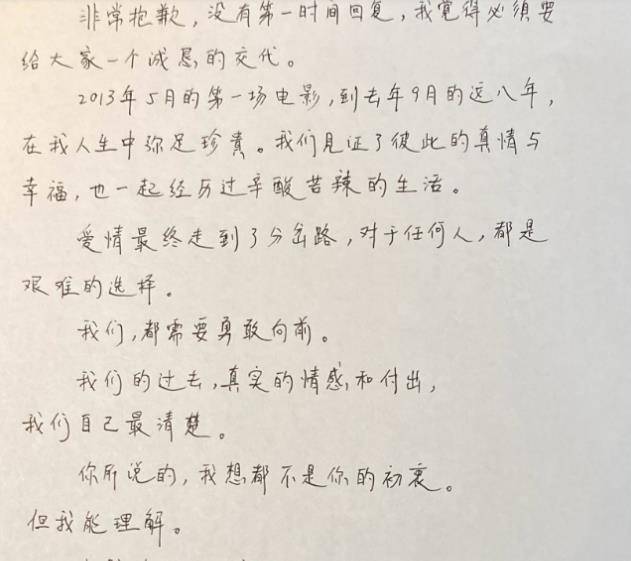 非常抱歉，没有第一时间回复，我觉得必须要
给大家一个诚恳的交代。
2013年5月的第一场电影，到去年9月的这八年，
在我人生中弥足珍贵。我们见证了彼此的真情与
幸福，也一起经历过辛酸苦辣的生活。
爱情最终走到了分岔路，对于任何人，都是
艰难的选择。
我们，都需要勇敢向前。
我们的过去，真实的情感和付出，
我们自己最清楚。
你所说的，我想都不是你的初衷。
但我能理解。